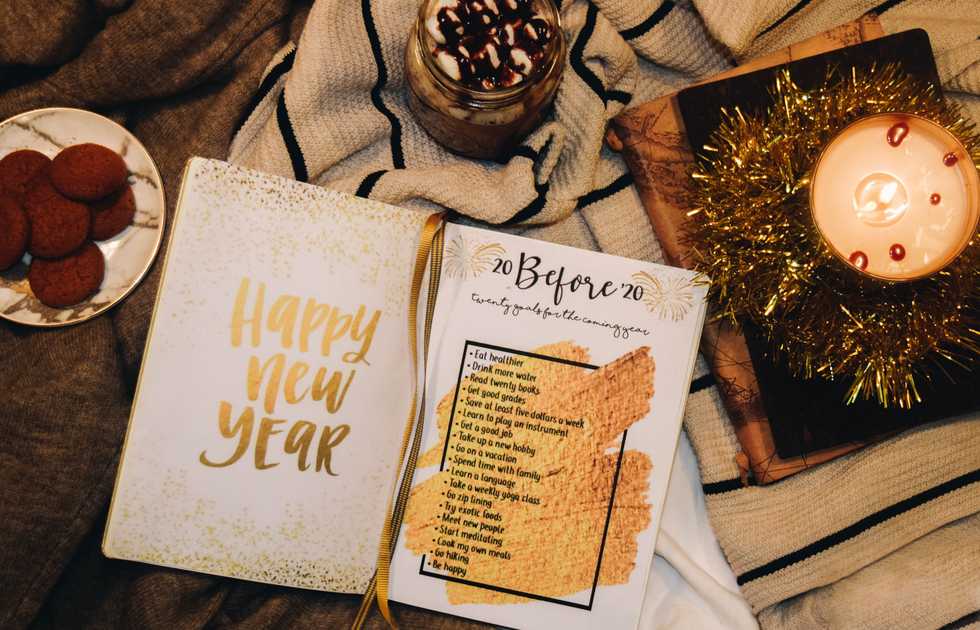 Happy
New
Year
20 Before '20
twenty goals for the coming year
• Eat healthier
• Drink more water
• Read twenty books
• Get good grades
• Save at least five dollars a week
• Learn to play an instrument
• Get a good job
• Take up a new hobby
• Go on a vacation
• Spend time with family
• Learn a language
• Take a weekly yoga class
• Go zip lining
• Try exotic foods
• Meet new people
• Start meditating
• Cook my own meals
• Go hiking
• Be happy